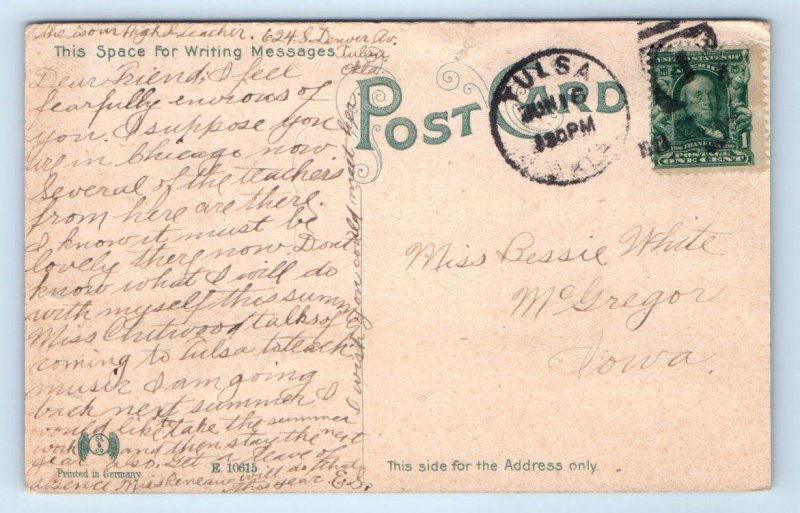 She is our High S. Teacher. 624 S. Denver Av.
Tulsa
Okla.
This Space For Writing Messages
Dear Friend; I feel
fearfully envious of
you. I suppose you
are in Chicago now
Several of the teachers
from here are there.
I know it must be
lovely there now. Dont
know what I will do
with myself this summer
Miss Chitwood talks of
coming to Tulsa to teach
music. I am going
back next summer I
would like to take the summer
work and then stay the next
year also. Get a leave of
absence. Miss Reneau will do that
this year. E.S.
I wish you could meet her
Printed in Germany
E 10615
POST CARD
TULSA
JUN 16
3 30 PM
OKLA
UNITED STATES OF AMERICA
FRANKLIN
POSTAGE
ONE CENT
1
Miss Bessie White
McGregor
Iowa.
This side for the Address only.